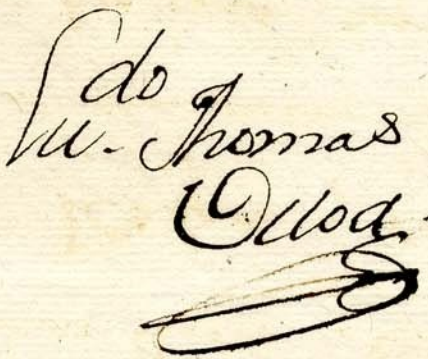 Lic.do Thomas
Ulloa